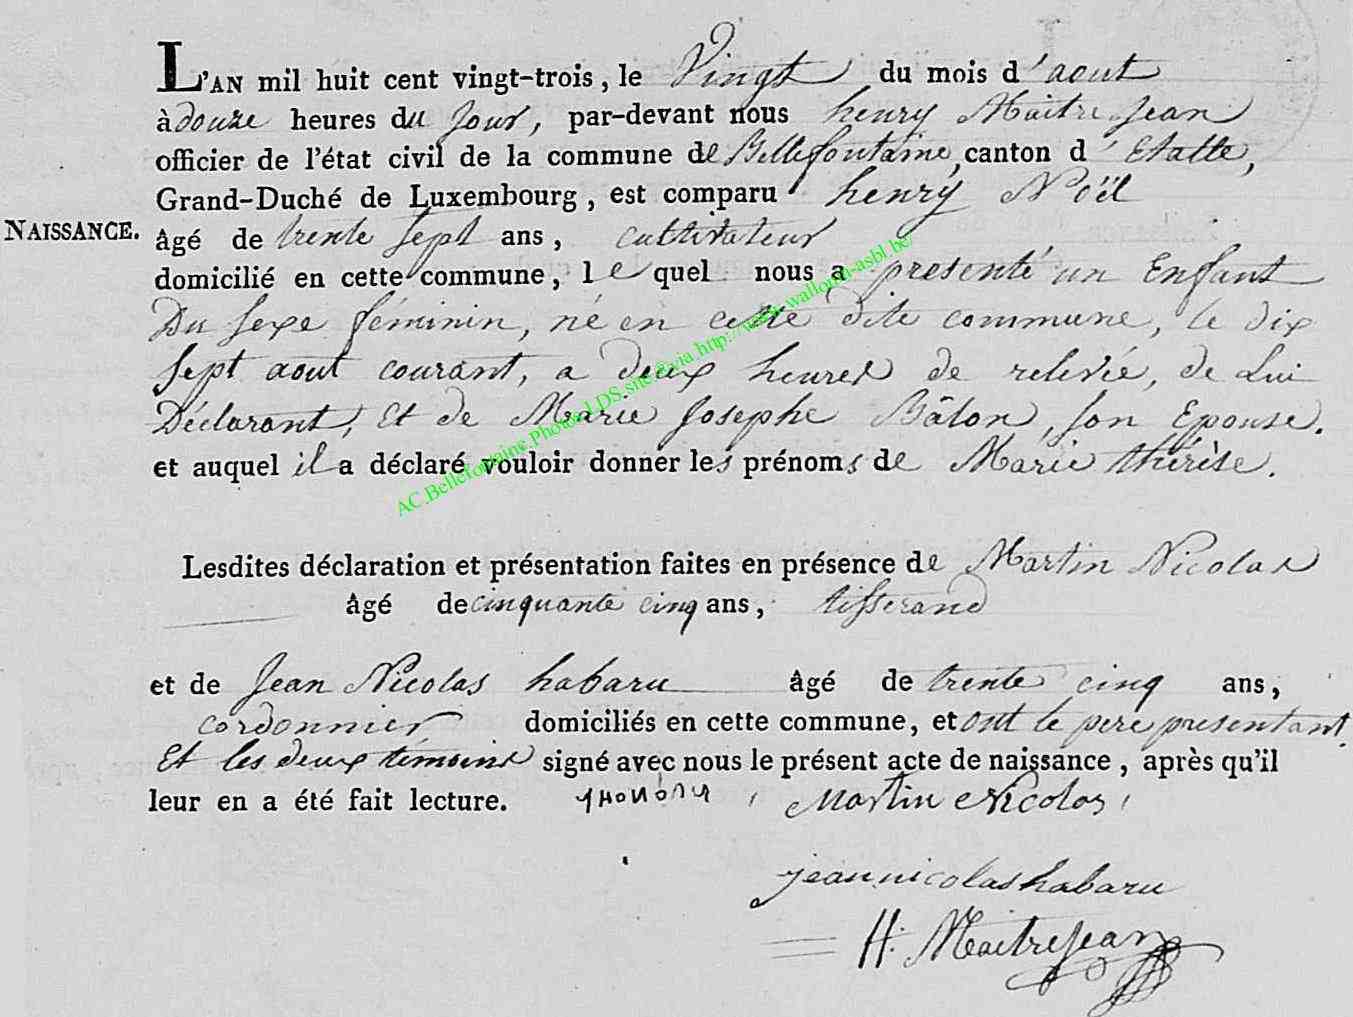 L'AN mil huit cent vingt-trois, le Vingt du mois d'aout
à douze heures du Jour, par-devant nous henry Maitrejean
officier de l'état civil de la commune de Bellefontaine, canton d'Etalle,
Grand-Duché de Luxembourg, est comparu henry Noël
NAISSANCE.
âgé de trente sept ans, cultivateur
domicilié en cette commune, le quel nous a presenté un Enfant
Du sexe féminin, né en cette dite commune, le dix
sept aout courant, a deux heures de relevée, de Lui
Déclarant, Et de Marie Josephe Bâlon, son Epouse.
et auquel il a déclaré vouloir donner les prénoms de Marie thérèse.
AC.Bellefontaine.Photos LDS.sne ©via http://www.wallonia-asbl.be/
Lesdites déclaration et présentation faites en présence de Martin Nicolas
âgé de cinquante cinq ans, tisserand
et de Jean Nicolas habaru âgé de trente cinq ans,
cordonnier domiciliés en cette commune, et ont le pere presentant
Et les deux témoins signé avec nous le présent acte de naissance, après qu'il
leur en a été fait lecture. Martin Nicolas,
jeannicolashabaru
H. Maitrejean